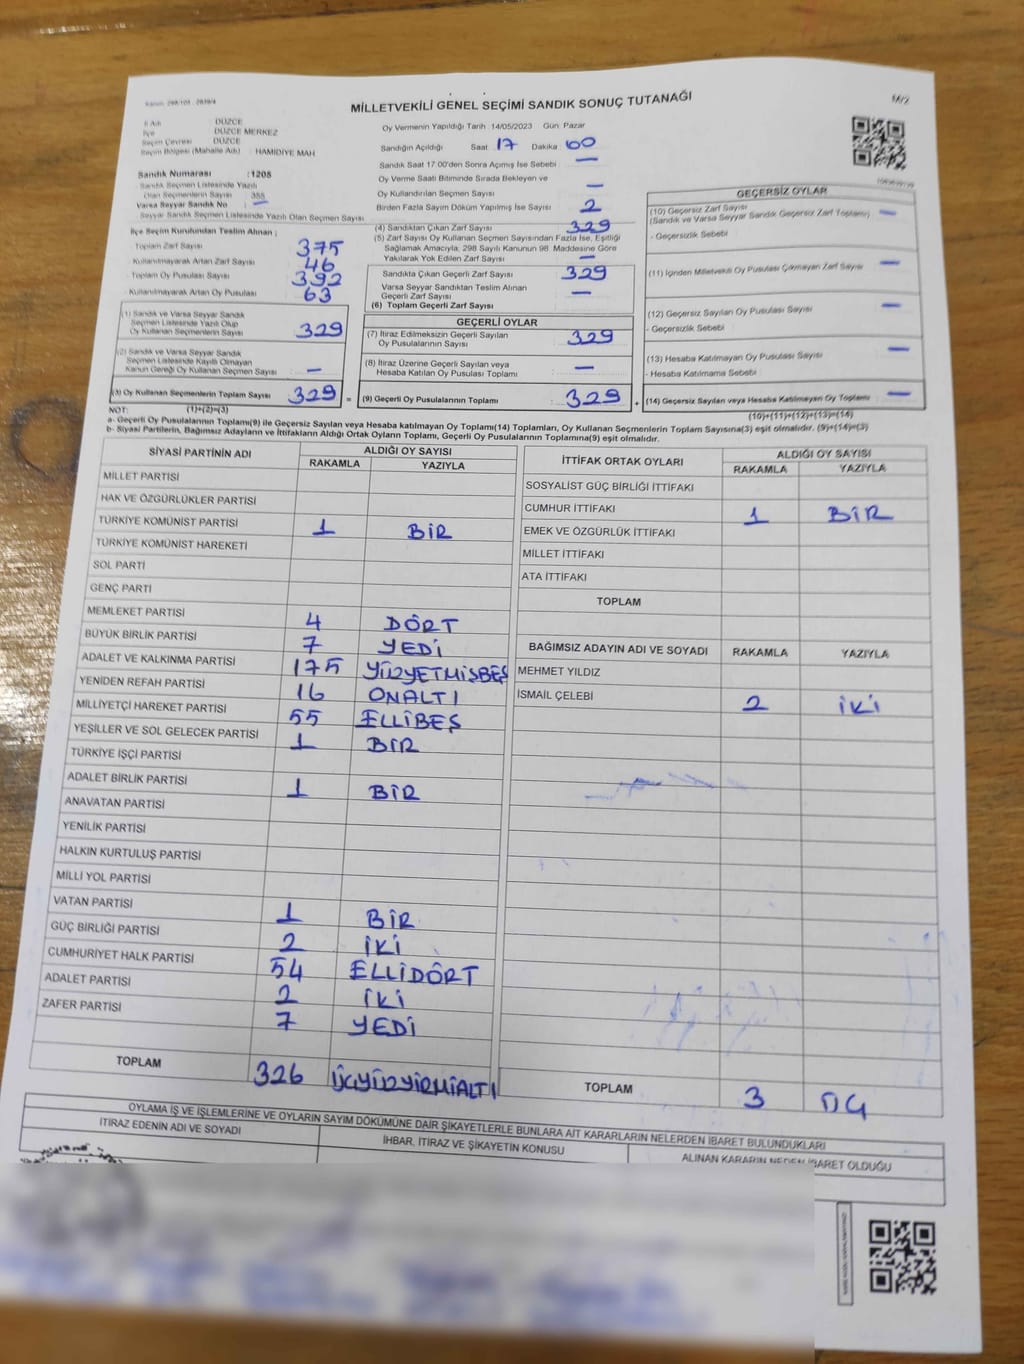 Kanun: 298/105 - 2839/4
MİLLETVEKİLİ GENEL SEÇİMİ SANDIK SONUÇ TUTANAĞI
M/2
İl Adı : DÜZCE
İlçe : DÜZCE MERKEZ
Seçim Çevresi : DÜZCE
Seçim Bölgesi (Mahalle Adı) : HAMİDİYE MAH
Sandık Numarası : 1205
Sandık Seçmen Listesinde Yazılı
Olan Seçmenlerin Sayısı : 355
Varsa Seyyar Sandık No : —
Seyyar Sandık Seçmen Listesinde Yazılı Olan Seçmen Sayısı
Oy Vermenin Yapıldığı Tarih : 14/05/2023 Gün: Pazar
Sandığın Açıldığı Saat 17 Dakika 60
Sandık Saat 17:00'den Sonra Açımış İse Sebebi : —
Oy Verme Saati Bitiminde Sırada Bekleyen ve
Oy Kullandırılan Seçmen Sayısı : —
Birden Fazla Sayım Döküm Yapılmış İse Sayısı : 2
İlçe Seçim Kurulundan Teslim Alınan ;
Toplam Zarf Sayısı : 375
Kullanılmayarak Artan Zarf Sayısı : 46
Toplam Oy Pusulası Sayısı : 392
Kullanılmayarak Artan Oy Pusulası : 63
(1) Sandık ve Varsa Seyyar Sandık
Seçmen Listesinde Yazılı Olup
Oy Kullanan Seçmenlerin Sayısı : 329
(2) Sandık ve Varsa Seyyar Sandık
Seçmen Listesinde Kayıtlı Olmayan
Kanun Gereği Oy Kullanan Seçmen Sayısı : —
(3) Oy Kullanan Seçmenlerin Toplam Sayısı 329 =
(1)+(2)=(3)
(4) Sandıktan Çıkan Zarf Sayısı : 329
(5) Zarf Sayısı Oy Kullanan Seçmen Sayısından Fazla İse, Eşitliği
Sağlamak Amacıyla, 298 Sayılı Kanunun 98. Maddesine Göre
Yakılarak Yok Edilen Zarf Sayısı : —
Sandıkta Çıkan Geçerli Zarf Sayısı : 329
Varsa Seyyar Sandıktan Teslim Alınan
Geçerli Zarf Sayısı : —
(6) Toplam Geçerli Zarf Sayısı
GEÇERLİ OYLAR
(7) İtiraz Edilmeksizin Geçerli Sayılan
Oy Pusulalarının Sayısı : 329
(8) İtiraz Üzerine Geçerli Sayılan veya
Hesaba Katılan Oy Pusulası Toplamı : —
(9) Geçerli Oy Pusulalarının Toplamı : 329 +
GEÇERSİZ OYLAR
(10) Geçersiz Zarf Sayısı
(Sandık ve Varsa Seyyar Sandık Geçersiz Zarf Toplamı) : —
- Geçersizlik Sebebi :
(11) İçinden Milletvekili Oy Pusulası Çıkmayan Zarf Sayısı : —
(12) Geçersiz Sayılan Oy Pusulası Sayısı : —
- Geçersizlik Sebebi :
(13) Hesaba Katılmayan Oy Pusulası Sayısı : —
- Hesaba Katılmama Sebebi :
(14) Geçersiz Sayılan veya Hesaba Katılmayan Oy Toplamı : —
(10)+(11)+(12)+(13)=(14)
NOT:
a- Geçerli Oy Pusulalarının Toplamı(9) ile Geçersiz Sayılan veya Hesaba katılmayan Oy Toplamı(14) Toplamları, Oy Kullanan Seçmenlerin Toplam Sayısına(3) eşit olmalıdır. (9)+(14)=(3)
b- Siyasi Partilerin, Bağımsız Adayların ve İttifakların Aldığı Ortak Oyların Toplamı, Geçerli Oy Pusulalarının Toplamına(9) eşit olmalıdır.
SİYASİ PARTİNİN ADI ALDIĞI OY SAYISI
RAKAMLA YAZIYLA
MİLLET PARTİSİ
HAK VE ÖZGÜRLÜKLER PARTİSİ
TÜRKİYE KOMÜNİST PARTİSİ 1 BİR
TÜRKİYE KOMÜNİST HAREKETİ
SOL PARTİ
GENÇ PARTİ
MEMLEKET PARTİSİ 4 DÖRT
BÜYÜK BİRLİK PARTİSİ 7 YEDİ
ADALET VE KALKINMA PARTİSİ 175 YÜZYETMİŞBEŞ
YENİDEN REFAH PARTİSİ 16 ONALTI
MİLLİYETÇİ HAREKET PARTİSİ 55 ELLİBEŞ
YEŞİLLER VE SOL GELECEK PARTİSİ 1 BİR
TÜRKİYE İŞÇİ PARTİSİ
ADALET BİRLİK PARTİSİ 1 BİR
ANAVATAN PARTİSİ
YENİLİK PARTİSİ
HALKIN KURTULUŞ PARTİSİ
MİLLİ YOL PARTİSİ
VATAN PARTİSİ 1 BİR
GÜÇ BİRLİĞİ PARTİSİ 2 İKİ
CUMHURİYET HALK PARTİSİ 54 ELLİDÖRT
ADALET PARTİSİ 2 İKİ
ZAFER PARTİSİ 7 YEDİ
TOPLAM 326 ÜÇYÜZYİRMİALTI
İTTİFAK ORTAK OYLARI ALDIĞI OY SAYISI
RAKAMLA YAZIYLA
SOSYALİST GÜÇ BİRLİĞİ İTTİFAKI
CUMHUR İTTİFAKI 1 BİR
EMEK VE ÖZGÜRLÜK İTTİFAKI
MİLLET İTTİFAKI
ATA İTTİFAKI
TOPLAM
BAĞIMSIZ ADAYIN ADI VE SOYADI RAKAMLA YAZIYLA
MEHMET YILDIZ
İSMAİL ÇELEBİ 2 İKİ
TOPLAM 3 ÜÇ
OYLAMA İŞ VE İŞLEMLERİNE VE OYLARIN SAYIM DÖKÜMÜNE DAİR ŞİKAYETLERLE BUNLARA AİT KARARLARIN NELERDEN İBARET BULUNDUKLARI
İTİRAZ EDENİN ADI VE SOYADI
İHBAR, İTİRAZ VE ŞİKAYETİN KONUSU
ALINAN KARARIN NEDEN İBARET OLDUĞU